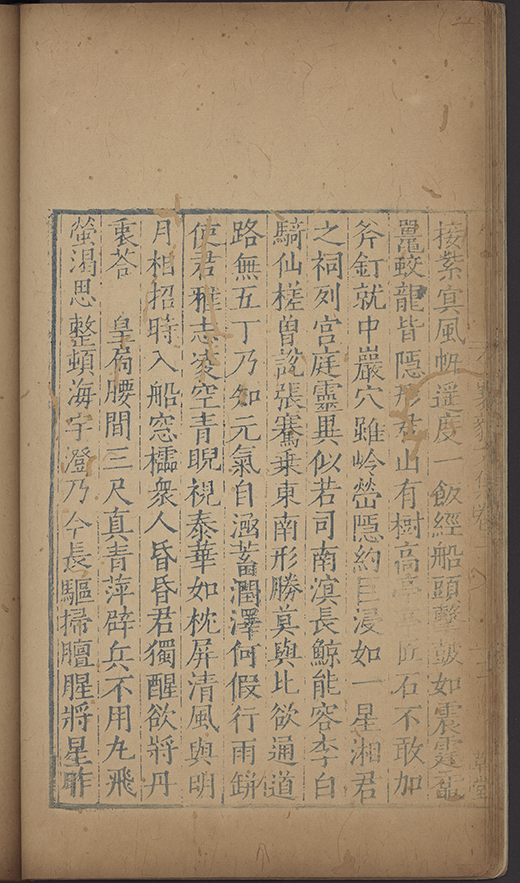 接紫冥風帆遥度一飯經船頭疊鼓如震霆黿
鼉蛟龍皆隱形君山有樹高亭亭匠石不敢加
斧釘就中巖穴雖岭嶗隱約巨浸如一星湘君
之祠列宫庭靈異似若司南溟長鯨能容李白
騎仙槎曾説張騫乗東南形勝莫與比欲通道
路無五丁乃知元氣自涵蓄潤澤何假行雨缾
使君雅志凌空青睨視泰華如枕屏清風與明
月相招時入船窓櫺衆人昏昏君獨醒欲將丹
衷荅 皇扃腰間三尺真青萍辟兵不用九飛
螢渇思整頓海宇澄乃今長驅掃膻腥將星昨
草堂